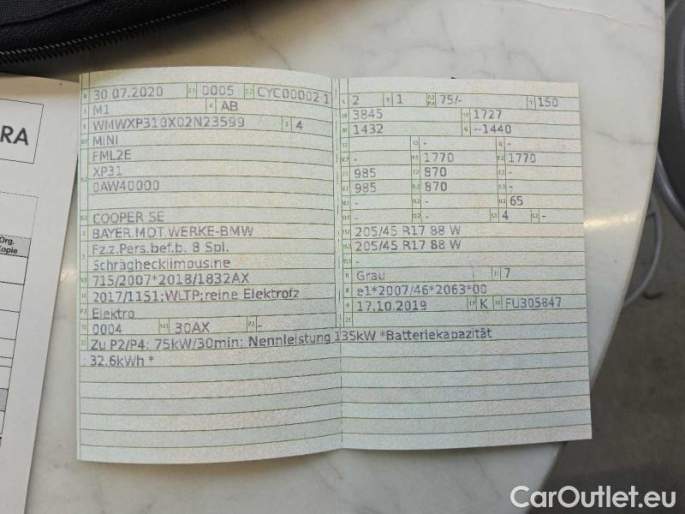 RA
Org.
Kopie
30.07.2020 0005 CYC00002 1
M1 AB
WMWXP310X02N23599 4
MINI
FML2E
XP31
0AW40000
COOPER SE
BAYER.MOT.WERKE-BMW
Fz.z.Pers.bef.b. 8 Spl.
Schräghecklimousine
715/2007*2018/1832AX
2017/1151;WLTP;reine Elektrofz
Elektro
0004 30AX -
2 1 75/- 150
3845 1727
1432 -1440
- -
- 1770 1770
985 870 -
985 870 -
- - 65
- 4 -
205/45 R17 88 W
205/45 R17 88 W
-
Grau 7
e1*2007/46*2063*00
17.10.2019 K FU305847
Zu P2/P4: 75kW/30min; Nennleistung 135kW *Batteriekapazität
32.6kWh *
CarOutlet.eu